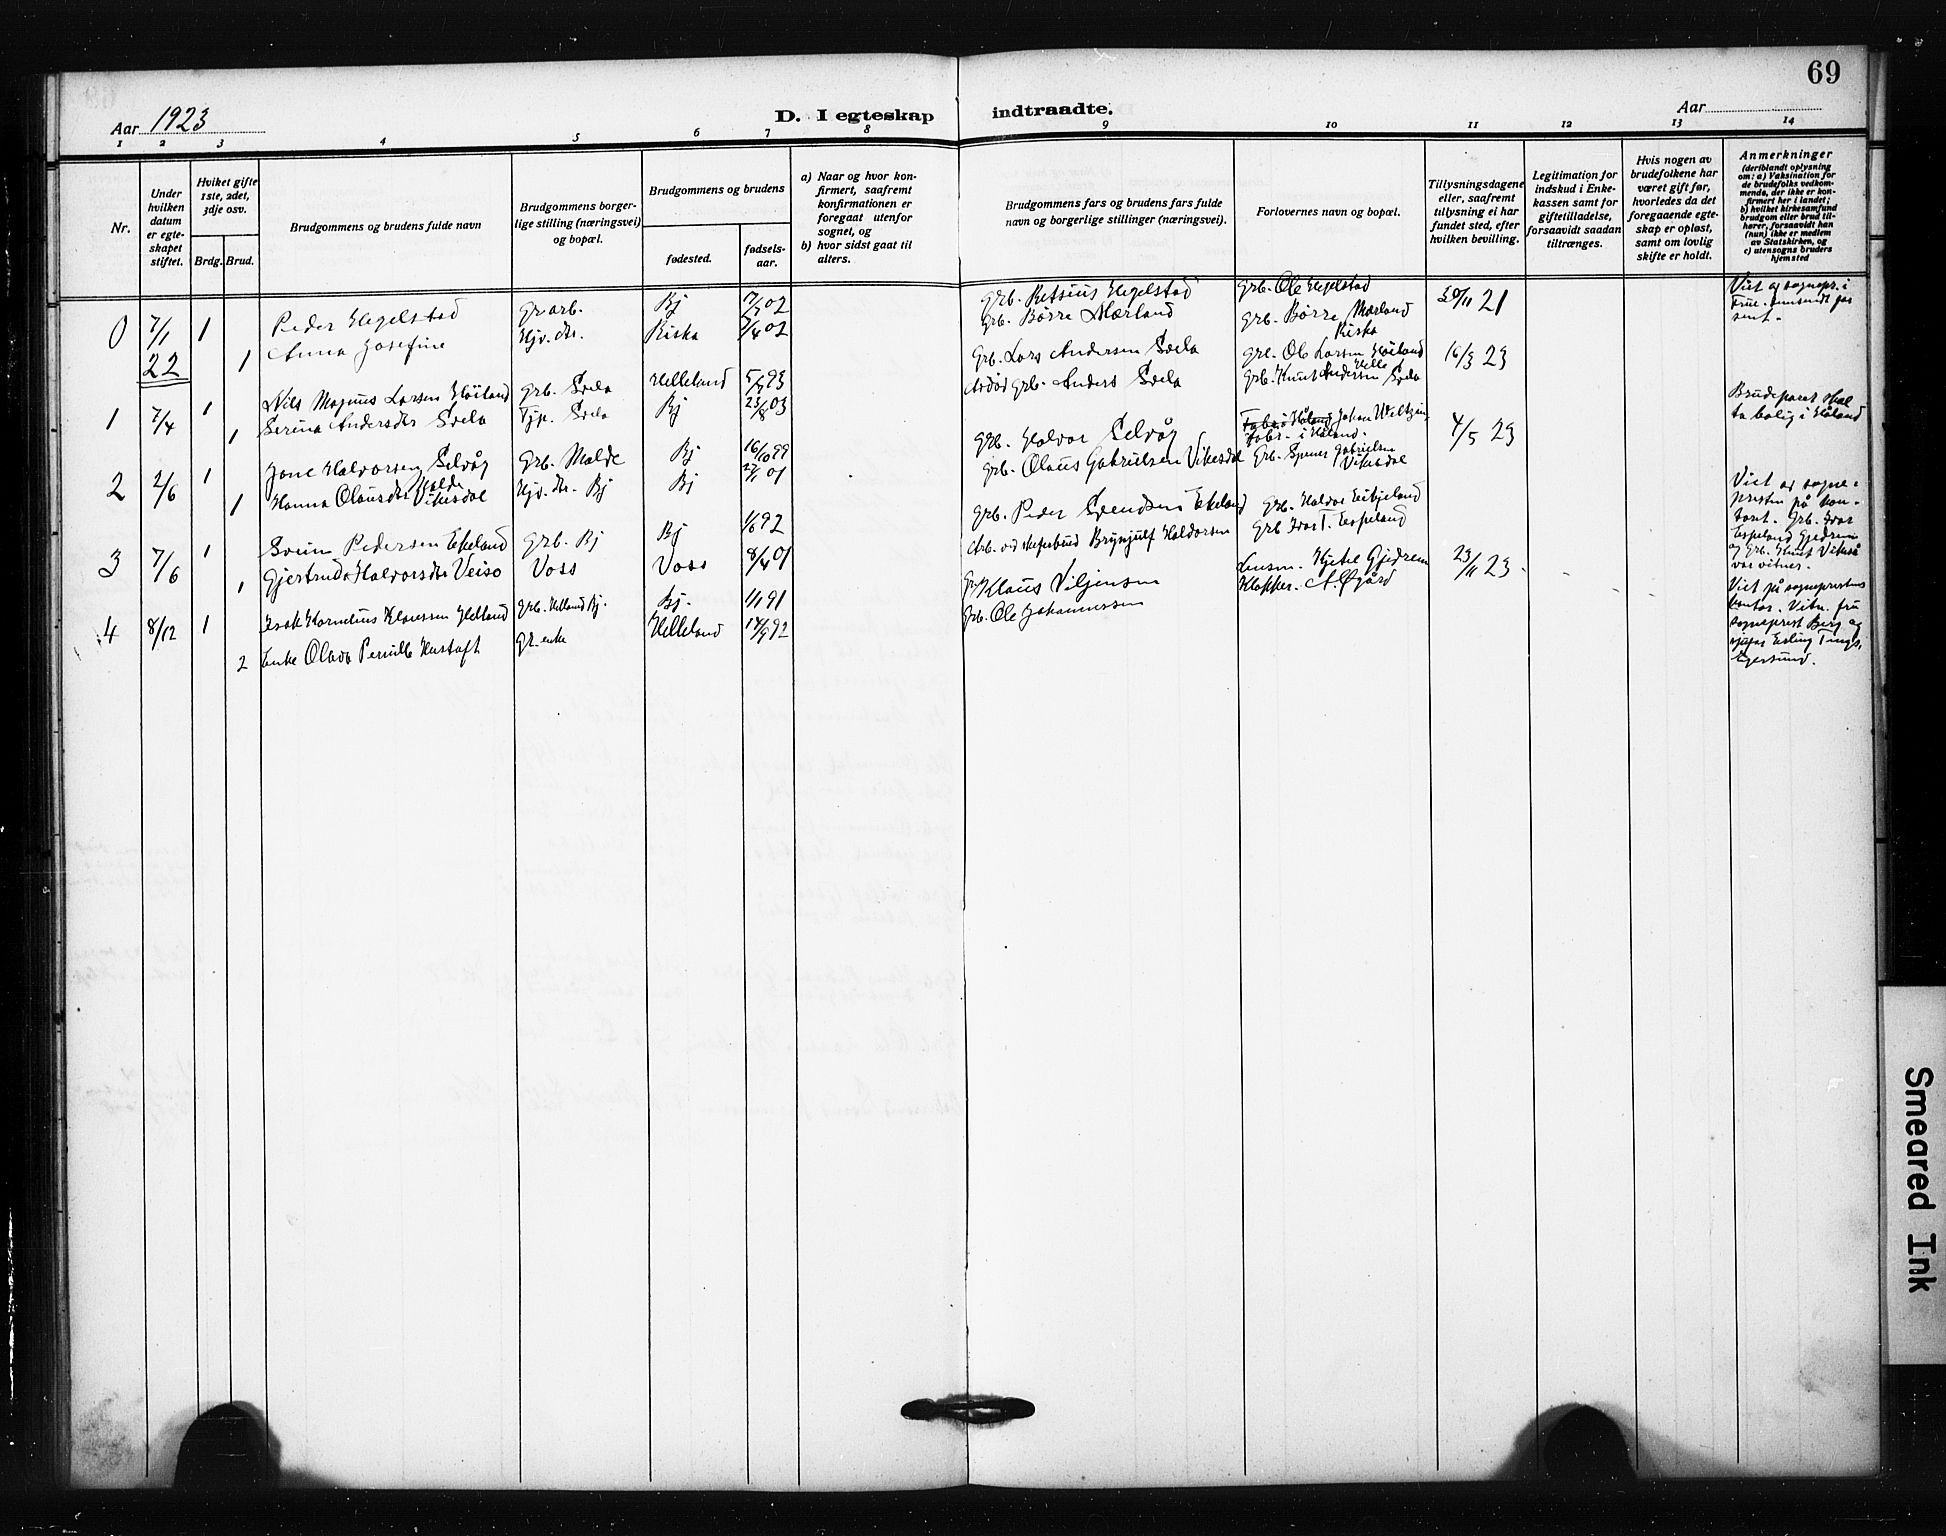 69
Aar 1923
D. I egteskap indtraadte.
Aar
1 2 3 4 5 6 7 8 9 10 11 12 13 14
Nr.
Under
hvilken
datum
er egte-
skapet
stiftet.
Hviket gifte
1ste, 2det,
3dje osv.
Brdg. Brud.
Brudgommens og brudens fulde navn
Brudgommens borger-
lige stilling (næringsvei)
og bopæl.
Brudgommens og brudens
fødested.
fødsels-
aar.
a) Naar og hvor kon-
firmert, saafremt
konfirmationen er
foregaat utenfor
sognet, og
b) hvor sidst gaat til
alters.
Brudgommens fars og brudens fars fulde
navn og borgerlige stillinger (næringsvei).
Forlovernes navn og bopæl.
Tillysningsdagene
eller, saafremt
tillysning ei har
fundet sted, efter
hvilken bevilling.
Legitimation for
indskud i Enke-
kassen samt for
giftetilladelse,
forsaavidt saadan
tiltrænges.
Hvis nogen av
brudefolkene har
været gift før,
hvorledes da det
foregaaende egte-
skap er opløst,
samt om lovlig
skifte er holdt.
Anmerkninger
(deriblandt oplysning
om: a) Vaksination for
de brudefolks vedkom-
mende, der ikke er kon-
firmert her i landet;
b) hvilket kirkesamfund
brudgom eller brud til-
hører, forsaavidt han
(hun) ikke er medlem
av Statskirken, og
c) utensogns bruders
hjemsted
0 7/1 1 Peder Hegelstad Grarb. Bj 02 Grb. Betsius Hegelstad Grb. Ole Hegelstad 30/11 21
22 1 Anna Josefine Hjv. dtr. Riska 7/4 02 Grb. Børre Mærland Grb. Børre Mærland
Riska
1 7/4 1 Nils Magnus Larsen Høiland Grb. Svela Helleland 93 Grb. Lars Andersen Svela Grb. Ole Larsen Høiland 16/3 23
1 Serina Andersdtr Svela Tjp. Svela Bj 23/8 03 Grb. Anders Svela Grb. Knut Andersen Svela
Brudeparet skal
ta bolig i Håland
2 2/6 1 Jone Halvorsen Selvåg Grb. Malde Bj 16/10 99 Grb. Halvor Selvåg Johan Weltzin 4/5 23
Fabr. i Håland.
1 Hanna Olausdtr Vikesdal Hjv. dtr. Bj Bj 01 Grb. Olaus Gabrielsen Vikesdal Gabrielsen
Malde
Vikesdal
3 7/6 1 Svein Pedersen Ekeland Grb. Bj Bj 92 Grb. Peder Svendsen Ekeland Grb. Halvor Eikjeland
1 Gjertrud Halvorsdtr Veiso Voss Voss 8/4 01 Arb. Brynjulf Haldorsen Grb Ivar T. Espeland
Viet av sogne-
presten på kon-
toret. Grb. Ivar
Espeland Gjedrem
og Grb. Knut Vikeså
var vitner.
4 8/12 1 Isak Kornelius Klausen Helland Grb. Helland Bj. Bj. 1/1 91 Klaus Viljensen Lensm. Kjetel Gjedrem 23/11 23.
2 Enke Olava Pernille Gr. enke Helleland 92 Grb. Ole Johannessen Klokker. A. Øgård
Viet på sogneprestens
kontor. Vitn. fru
sogneprest Berg og
Egersund.
Smeared Ink